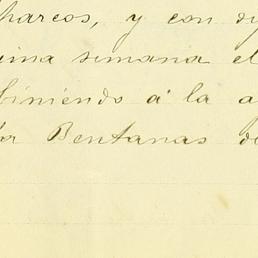 harcos, y con
una semana el
biniendo á la a
Bentanas de